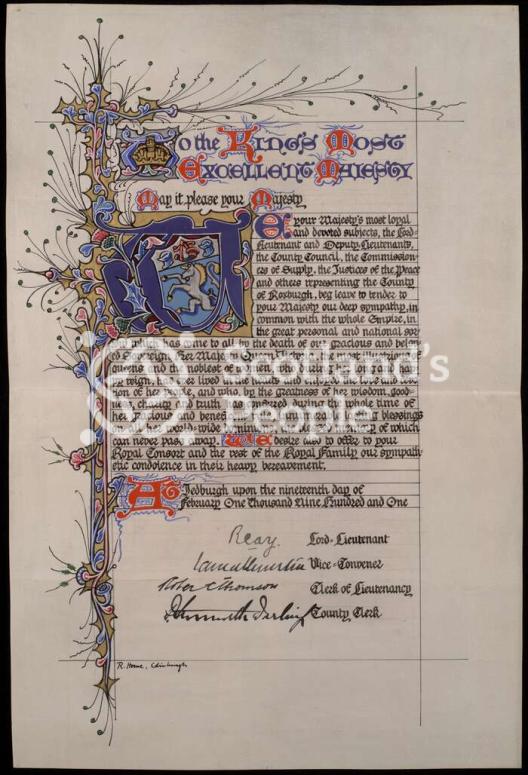 To the King's Most
Excellent Majesty
May it please your Majesty
We your Majesty's most loyal
and devoted subjects, the Lord-
Lieutenant and Deputy-Lieutenants,
the County Council, the Commission-
ers of Supply, the Justices of the Peace
and others representing the County
of Roxburgh, beg leave to tender to
your Majesty our deep sympathy, in
common with the whole Empire, in
the great personal and national sor-
row which has come to all by the death of our gracious and belov-
ed Sovereign, Her Majesty Queen Victoria, most illustrious
queens and noblest of women, who during
reign, has ever lived in the hearts and enjoyed the love and
tion of her people, and who, by the greatness of her wisdom, good-
ness, charity and truth conferred during the whole time of
her glorious and beneficent blessings
world-wide memory of which
can never pass away. We desire also to offer to your
Royal Consort and the rest of the Royal Family our sympath-
etic condolence in their heavy bereavement.
At Jedburgh upon the nineteenth day of
February One Thousand Nine Hundred and One
Reay. Lord-Lieutenant
Vice-Convener
Thomson Clerk of Lieutenancy
County Clerk
R. Horne, Edinburgh
Scotland's
People